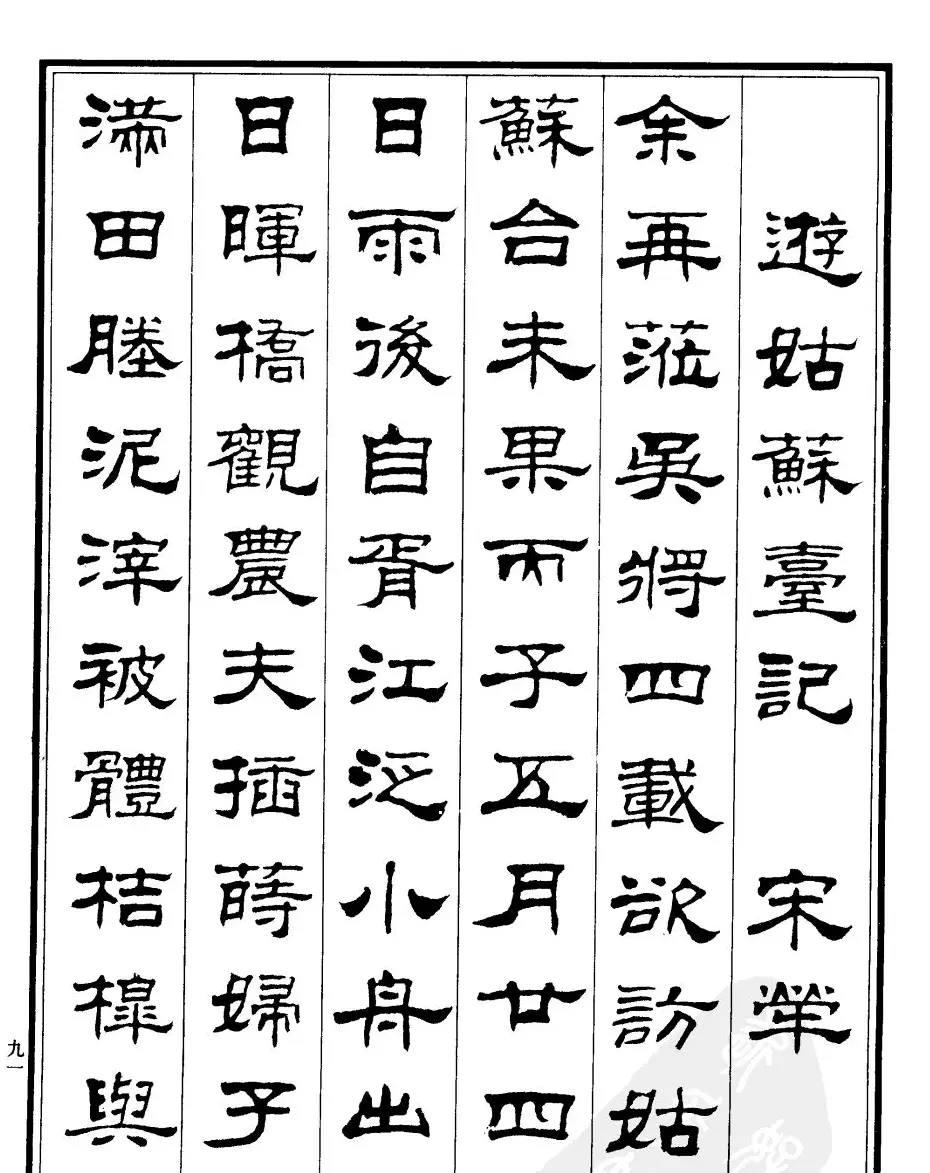 遊姑蘇臺記 宋犖
余再蒞吳將四載欲訪姑
蘇台未果丙子五月廿四
日雨後自胥江泛小舟出
日暉橋觀農夫插蒔婦子
滿田塍泥滓被體桔槔與
九一